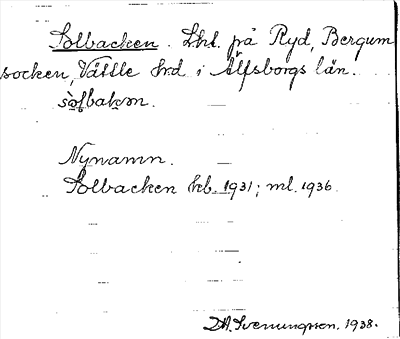 Solbacken. Lht. på Ryd, Bergum
socken, Vättle hrd i Älfsborgs län.
so̱lbakɘn.
Nynamn.
Solbacken kb. 1931; ml. 1936.
D.A. Svenungsson. 1938.